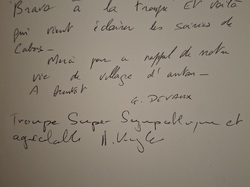 Bravo à la troupe et voilà
qui vient éclairer les soirées de
Cabris -
Merci pour ce rappel de notre
vie de village d'antan -
A bientôt
G. DEVAUX
Troupe Super Sympathique et
agréable